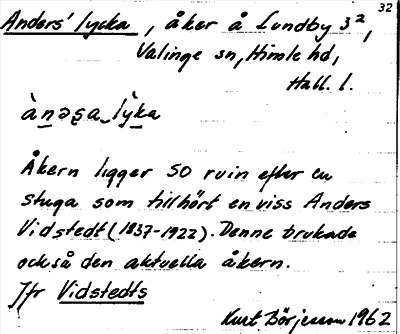 32
Anders' lycka, åker å Lundby 3²,
Valinge sn, Himle hd,
Hall. l.
ànəṣa_lỳka
Åkern ligger 50 m in efter en
stuga som tillhört en viss Anders
Vidstedt (1837-1922). Denne brukade
också den aktuella åkern.
Jfr Vidstedts
Kurt Börjesson 1962